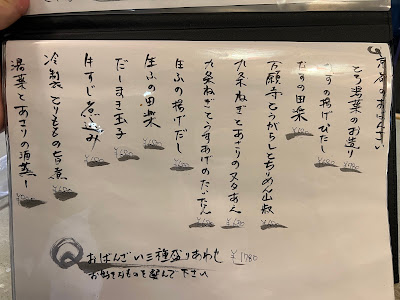 京都のおばんざい
とろ湯葉のお造り
なすの揚げびたし
なすの田楽
万願寺とうがらしとちりめん山椒
九条ねぎとあさりのぬたあえ
九条ねぎとうすあげのたいたん
生ふの揚げだし
生ふの田楽
だしまき玉子
牛すじ煮込み
冷製 とりももの旨煮
湯葉とあさりの酒蒸し
おばんざい三種盛りあわせ ¥1080
お好きなものを選んで下さい